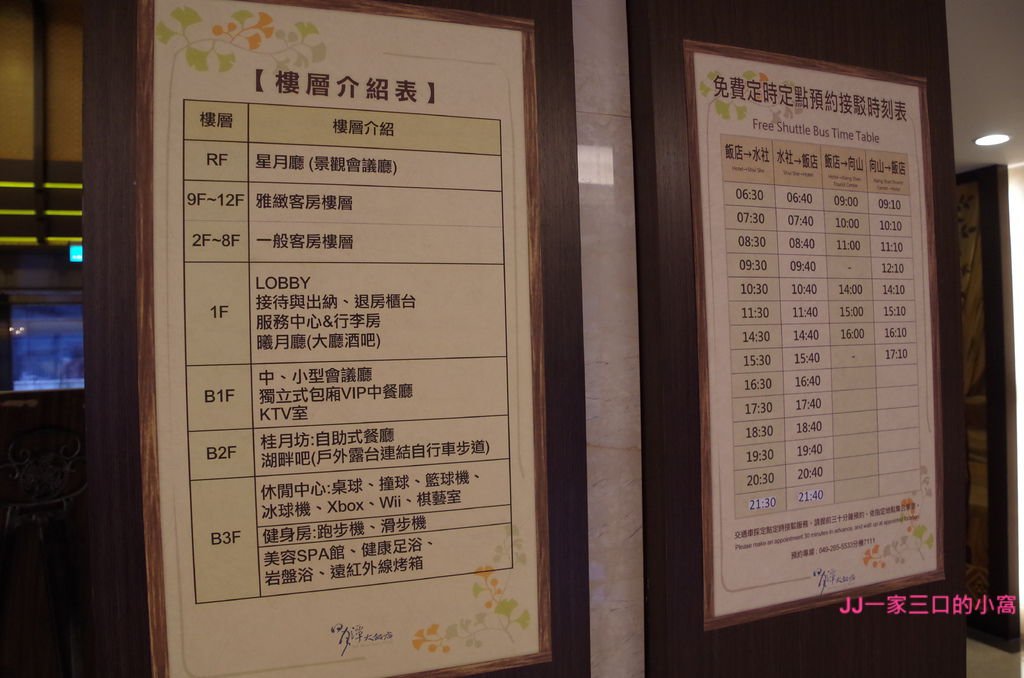 【樓層介紹表】
樓層 樓層介紹
RF 星月廳 (景觀會議廳)
9F~12F 雅緻客房樓層
2F~8F 一般客房樓層
1F LOBBY
接待與出納、退房櫃台
服務中心&行李房
曦月廳(大廳酒吧)
B1F 中、小型會議廳
獨立式包廂VIP中餐廳
KTV室
B2F 桂月坊:自助式餐廳
湖畔吧(戶外露台連結自行車步道)
B3F 休閒中心:桌球、撞球、籃球機、
冰球機、Xbox、Wii、棋藝室
健身房:跑步機、滑步機
美容SPA館、健康足浴、
岩盤浴、遠紅外線烤箱
大飯店
免費定時定點預約接駁時刻表
Free Shuttle Bus Time Table
飯店→水社 水社→飯店 飯店→向山 向山→飯店
06:30 06:40 09:00 09:10
07:30 07:40 10:00 10:10
08:30 08:40 11:00 11:10
09:30 09:40 - 12:10
10:30 10:40 14:00 14:10
11:30 11:40 15:00 15:10
14:30 14:40 16:00 16:10
15:30 15:40 - 17:10
16:30 16:40
17:30 17:40
18:30 18:40
19:30 19:40
20:30 20:40
21:30 21:40
交通車採定點定時接駁服務，請提前三十分鐘預約，依指定地點集合
Please make an appointment 30 minutes in advance, and wait up at appointed location.
預約專線 : 049-285-5533分機7111
大飯店
JJ一家三口的小窩